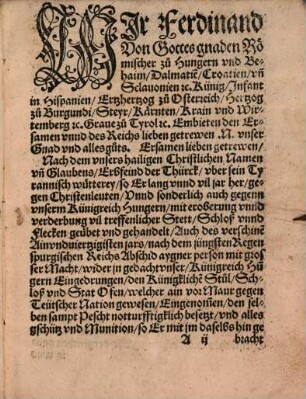 WIr Ferdinand
Von Gottes gnaden Rö
mischer zu Hungern vnd Be-
haim / Dalmatiē / Croatien / vñ
Sclauonien ꝛc. König / Infant
in Hispanien / Ertzhertzog zu Osterreich / Hertzog
zu Burgundi / Steyr / Kärnten / Krain vnd Wir-
temberg ꝛc. Graue zu Tyrol ꝛc. Embieten den Er-
samen vnnd des Reichs lieben getrewen N. vnser
Gnad vnd alles gůts. Ersamen lieben getrewen /
Nach dem vnsers hailigen Christlichen Namen
vñ Glaubens / Erbfeind der Thürck / vber sein Ty
rannisch wütterey / so Er lang vnnd vil jar her / ge-
gen Christenleuten / Vnnd sonderlich auch gegen
vnserm Künigreich Hungern / mit eroberung vnd
verderbung vil treffenlicher Stett / Schloß vnnd
Flecken geübet vnd gehandelt / Auch des verschinē
Ainundviertzigisten jars / nach dem jüngsten Regen
spurgischen Reichs Abschid aygner person mit gros
ser Macht / wider in gedachtvnser / Künigreich Hü
gern Eingedrungen / den Künigklichē Stůl / Sch-
loß vnd Stat Ofen / welcher ain vor Maur gegen
Teütscher Nation gewesen / Eingenom̄en / den sel-
ben sampt Pescht notturfftigklich besetzt / vnd alles
gschütz vnd Munition / so Er mit jm daselbs hin ge
A ij bracht